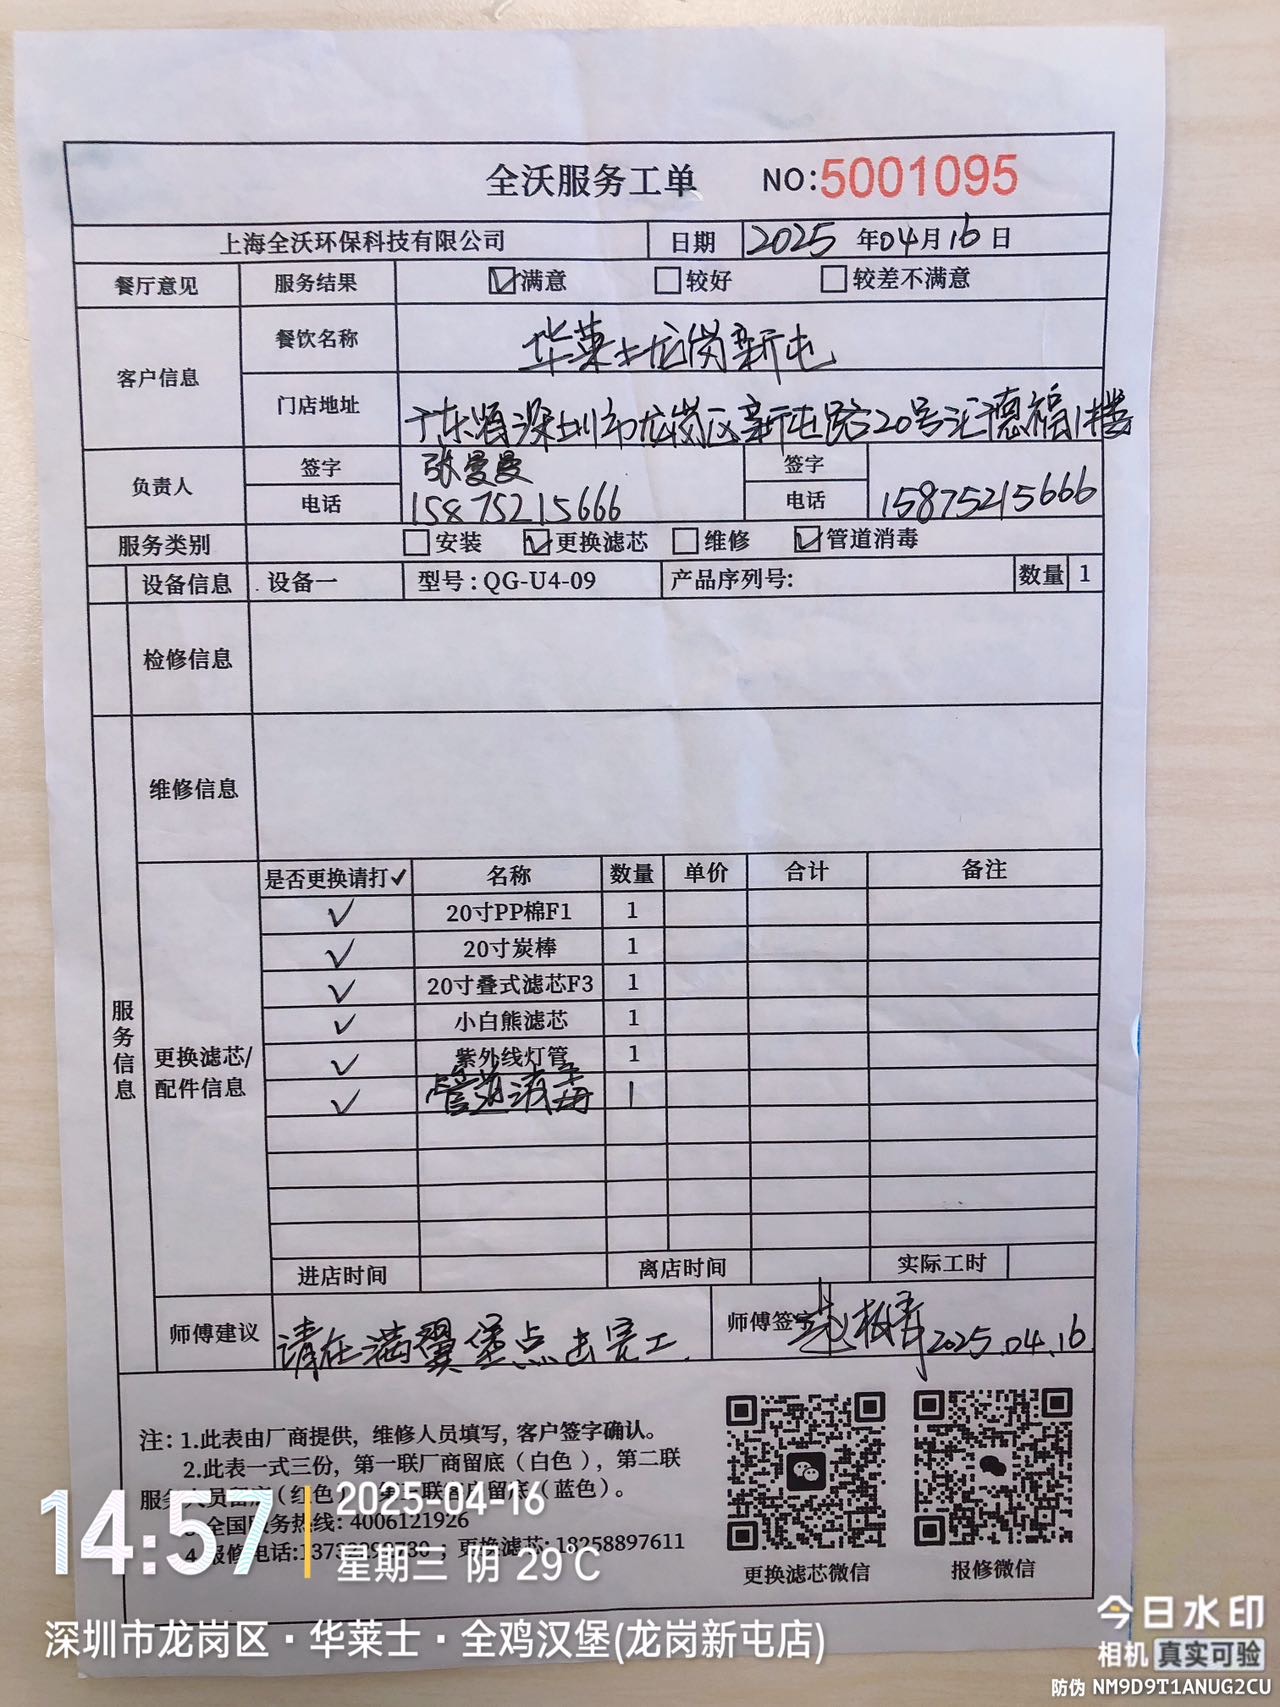 全沃服务工单 NO:5001095
上海全沃环保科技有限公司 日期 2025 年04月16日
餐厅意见 服务结果 ☑满意 □较好 □较差不满意
客户信息 餐饮名称 华莱士龙岗新屯
门店地址 广东省深圳市龙岗区新屯路20号汇德福1楼
负责人 签字 张曼曼 签字
电话 15875215666 电话 15875215666
服务类别 □安装 ☑更换滤芯 □维修 ☑管道消毒
设备信息 设备一 型号:QG-U4-09 产品序列号: 数量 1
检修信息
维修信息
服务信息
更换滤芯/配件信息
是否更换请打✓ 名称 数量 单价 合计 备注
✓ 20寸PP棉F1 1
✓ 20寸炭棒 1
✓ 20寸叠式滤芯F3 1
✓ 小白熊滤芯 1
✓ 紫外线灯管 1
✓ 管道消毒 1
进店时间 离店时间 实际工时
师傅建议 请在满翼堡点击完工. 师傅签字 2025.04.16
注:1.此表由厂商提供,维修人员填写,客户签字确认。
2.此表一式三份,第一联厂商留底(白色),第二联
服务人员留底(红色) 联客户留底(蓝色)。
全国服务热线:4006121926
4.报修电话:137 ,更换滤芯:18258897611
更换滤芯微信 报修微信
14:57 2025-04-16
星期三 阴 29℃
深圳市龙岗区·华莱士·全鸡汉堡(龙岗新屯店)
今日水印
相机 真实可验
防伪 NM9D9T1ANUG2CU